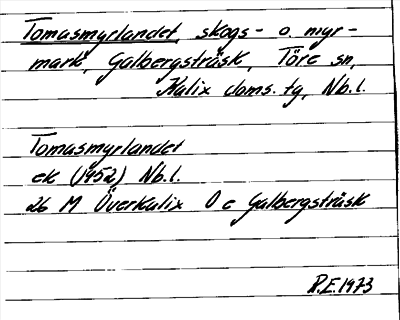 Tomasmyrlandet, skogs- o. myr-
mark, Galbergsträsk, Töre sn,
Kalix doms. tg, Nb.l.
Tomasmyrlandet
ek (1952) Nb.l.
26 M Överkalix O c Galbergsträsk
R.E. 1973